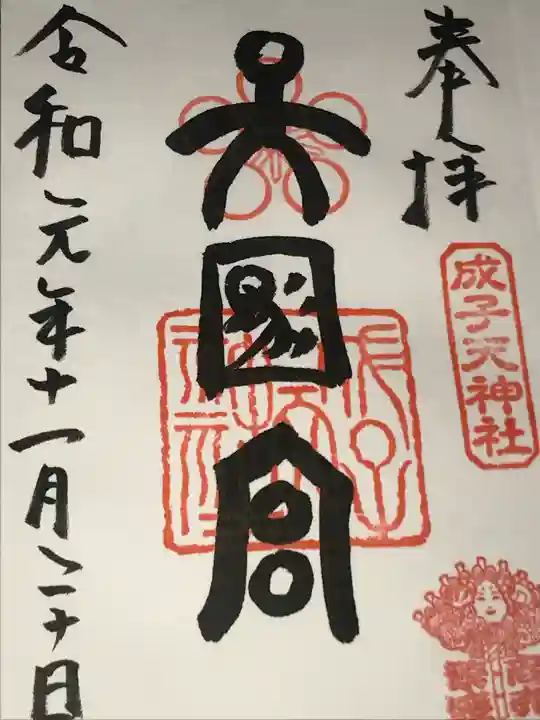 奉拝
成子天神社
大國宮
令和元年十一月二十日